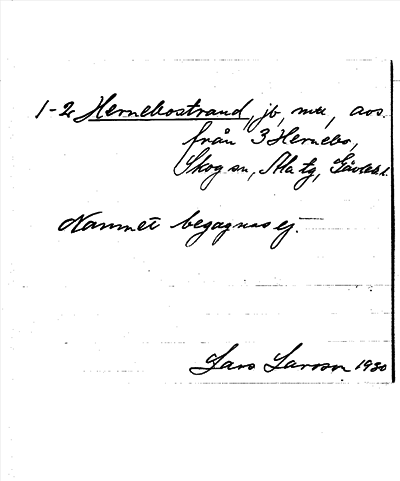 1-2 Hernebostrand, jb, mtl, avs.
från 3 Hernebo,
Skog sn, Ala tg, Gävlebl.
Namnet begagnas ej.
Lars Larsson 1930